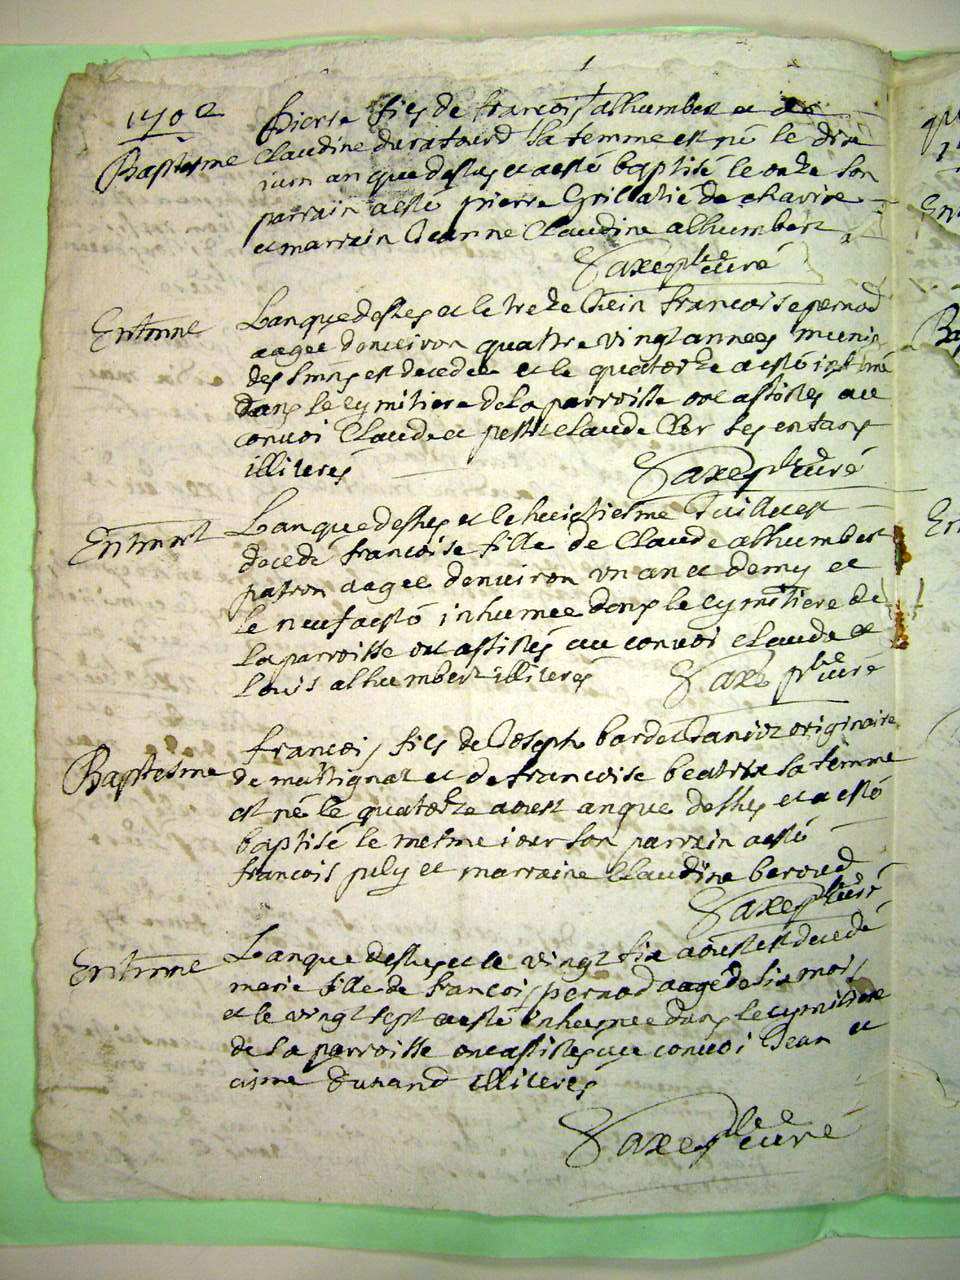 1702
Baptesme
pierre fils de francois alhumbert et de
Claudine duratourd sa femme est né le dix
iuin an que dessus et a esté baptisé le onze son
parrain a esté pierre Grillatié de charire
et marrain Jeanne Claudine alhumbert
Saxe pbre curé
Enterrme
L'an que dessus et le treze Juin francoise pernod
aagee d'enuiron quatre vingt annees munie
des smns est decedee et le quatorze a esté inhumé
dans le cymitiere de la parroisse ont assistes au
conuoi Claude et petit Claude ses enfans
illiteres
Saxe pbre curé
Enterrmt
L'an que dessus et le huictiesme Juillet est
decedé francoise fille de Claude alhumbert
patron aagee d'enuiron vn an et demy et
le neuf a esté inhumee dans le cymitiere de
la parroisse ont assistés au conuoi Claude et
Louis alhumbert illiteres
Saxe pbre curé
Baptesme
francois fils de Joseph bardet originaire
de martignat et de francoise beatrix sa femme
est né le quatorze aoust an que dessus et a esté
baptisé le mesme iour son parrain a esté
francois puly et marraine Claudine beroud
Saxe pbre curé
Enterrme
L'an que dessus et le vingt six aoust est decedé
marie fille de francois pernod aagé de six mois
et le vingt sept a esté inhumee dans le cymitiere
de la parroisse ont assistes au conuoi Jean et
aime durand illiteres
Saxe pbre curé